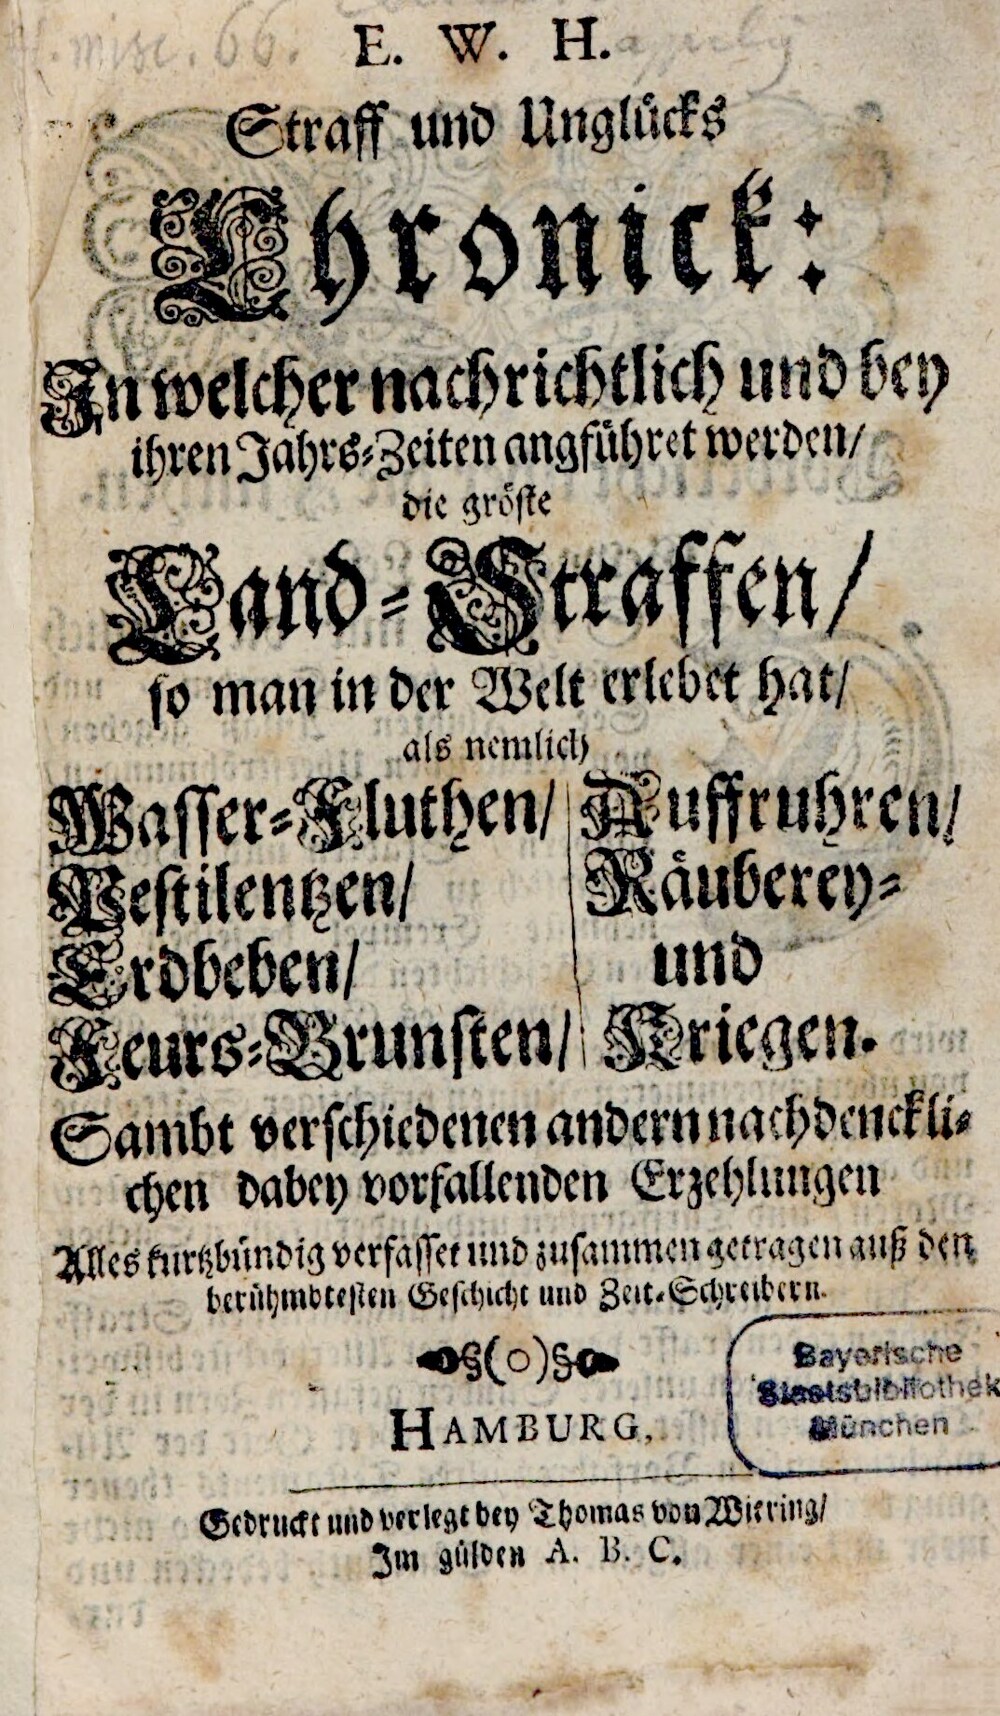 misc. 66.
E. W. H.
Straff und Unglücks
Chronick:
In welcher nachrichtlich und bey
ihren Jahrs-Zeiten angführet werden/
die gröste
Land-Straffen/
so man in der Welt erlebet hat/
als nemlich
Wasser-Fluthen/
Pestilentzen/
Erdbeben/
Feurs-Brunsten/
Auffruhren/
Räuberey-
und
Kriegen.
Sambt verschiedenen andern nachdenckli-
chen dabey vorfallenden Erzehlungen
Alles kurtzbündig verfasset und zusammen getragen auß den
berühmbtesten Geschicht und Zeit-Schreibern.
§(○)§
HAMBURG,
Gedruckt und verlegt bey Thomas von Wiering/
Im gülden A. B. C.
Bayerische
Staatsbibliothek
München